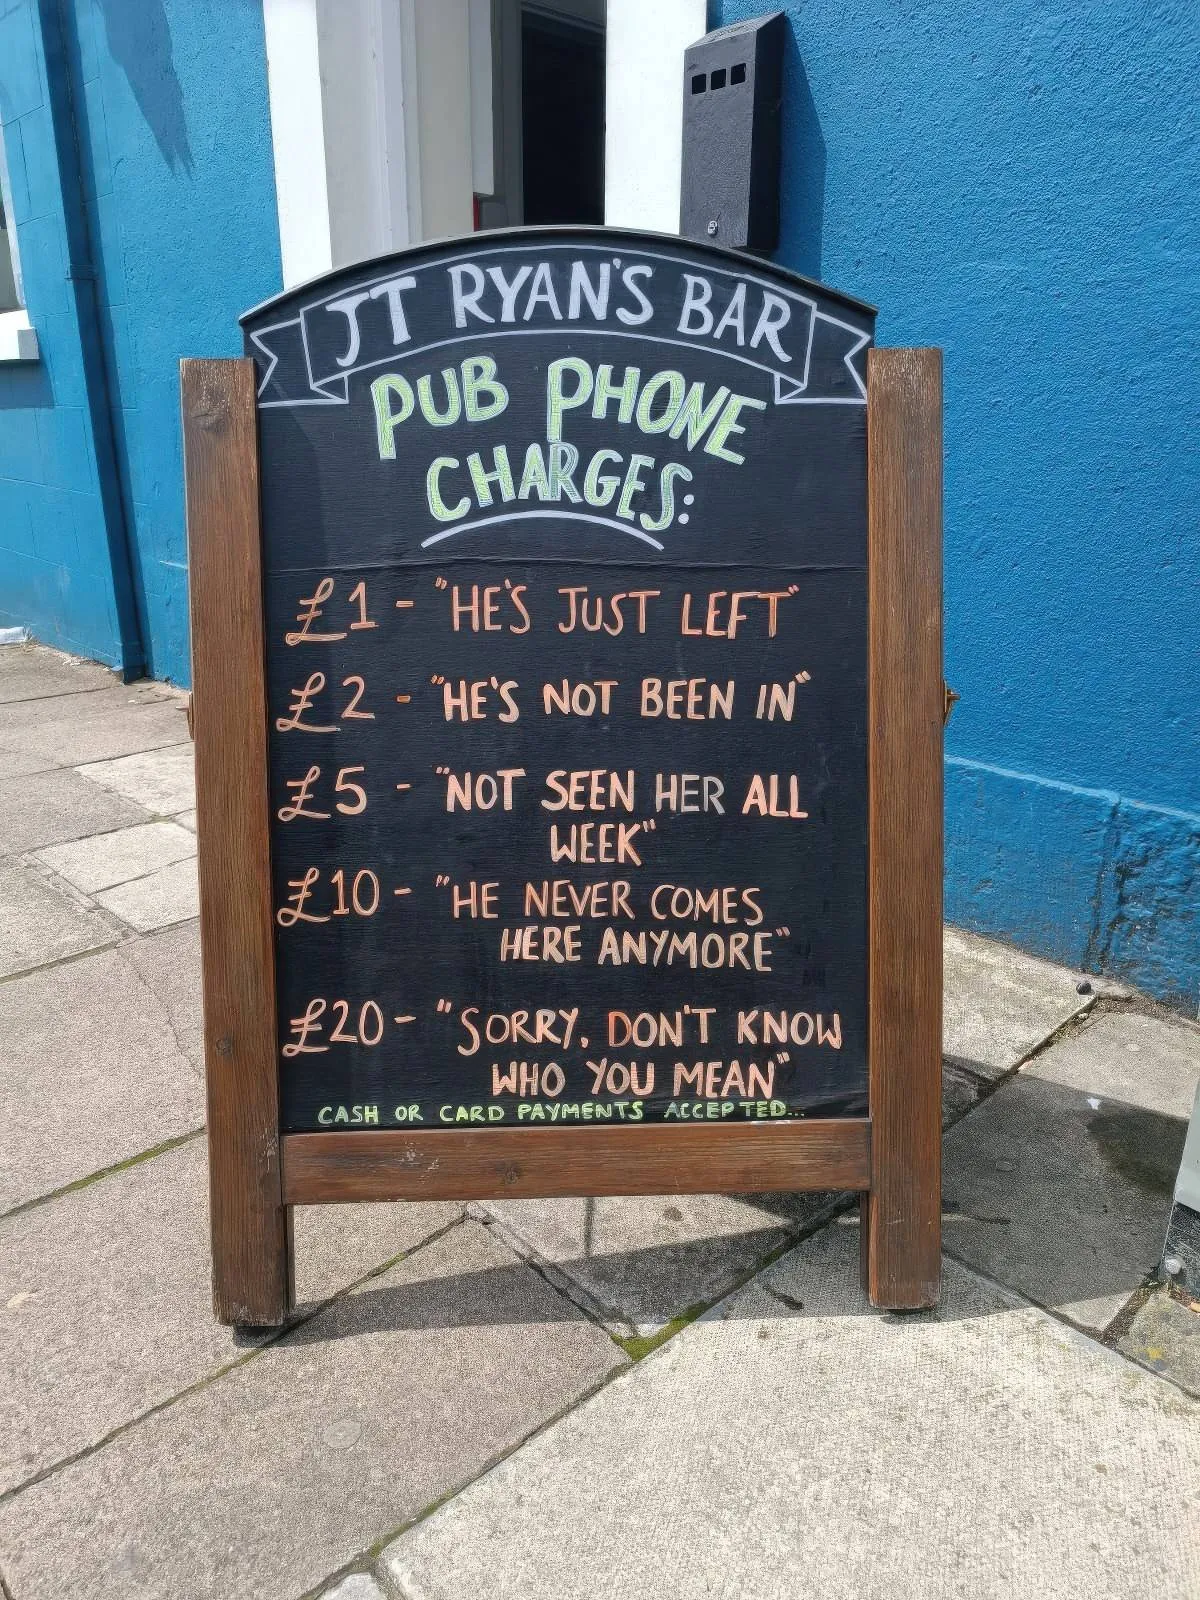 JT RYAN'S BAR
PUB PHONE
CHARGES:
£1 - "HE'S JUST LEFT"
£2 - "HE'S NOT BEEN IN"
£5 - "NOT SEEN HER ALL
WEEK"
£10 - "HE NEVER COMES
HERE ANYMORE"
£20 - "SORRY, DON'T KNOW
WHO YOU MEAN"
CASH OR CARD PAYMENTS ACCEPTED...